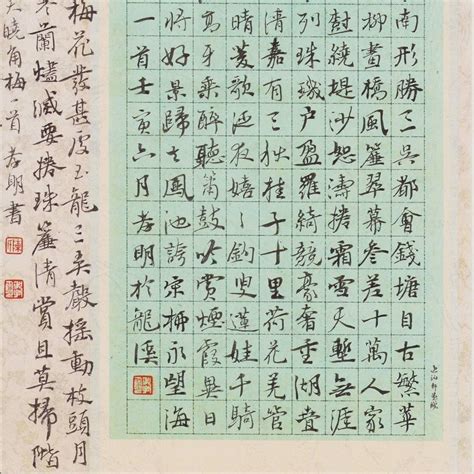 南形勝三吳都會錢塘自古繁華
柳畫橋風簾翠幕參差十萬人家
樹繞堤沙怒濤捲霜雪天塹無涯
列珠璣戶盈羅綺競豪奢重湖疊
清嘉有三秋桂子十里荷花羌管
晴菱歌泛夜嬉嬉釣叟蓮娃千騎
高牙乘醉聽簫鼓吟賞煙霞異日
將好景歸去鳳池誇宗柳永望海
一首壬寅六月孝明於龍溪
梅花發甚處玉龍三弄聲搖動枝頭月
寒蘭燼滅要捲珠簾清賞且莫掃階
天曉角梅一首孝明書